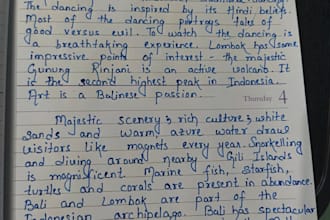 The dancing is inspired by its Hindi beliefs.
Most of the dancing portrays tales of
good versus evil. To watch the dancing is
a breathtaking experience. Lombok has some
impressive points of interest - the majestic
Gunung Rinjani is an active volcano. It
is the second highest peak in Indonesia.
Art is a Balinese passion.
Thursday 4
Majestic scenery, rich culture, white
sands and warm azure water draw
visitors like magnets every year. Snorkelling
and diving around nearby Gili Islands
is magnificent. Marine fish, starfish,
turtles and corals are present in abundance.
Bali and Lombok are part of the
Indonesian archipelago. Bali has spectacular